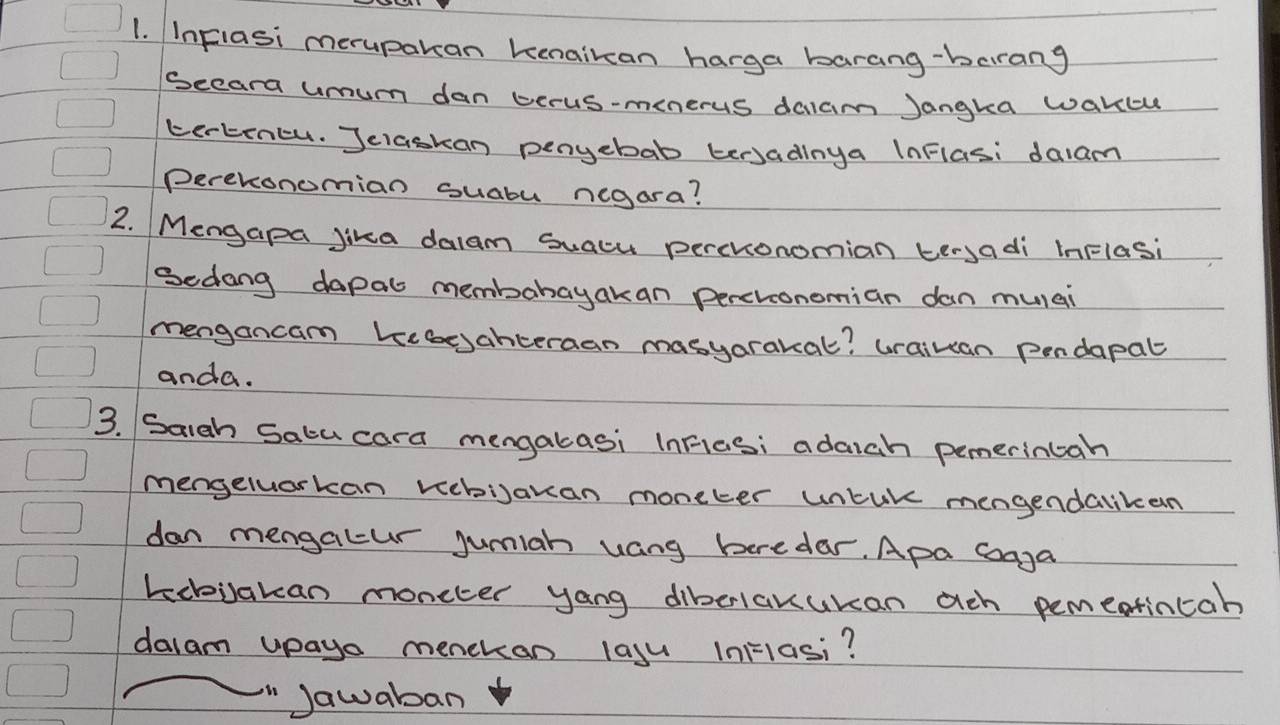 1. Inflasi merupakan kenaikan harga barang-barang
Secara umum dan terus-menerus dalam Jangka waktu
tertentu. Jelaskan penyebab terjadinya Inflasi dalam
Perekonomian suatu negara?
2. Mengapa jika dalam suatu perekonomian terjadi Inflasi
Sedang dapat membahayakan Perekonomian dan mulai
mengancam kesejahteraan masyarakat? Uraikan Pendapat
anda.
3. Salah Satu cara mengatasi Inflasi adalah pemerintah
mengeluarkan kebijakan moneter untuk mengendalikan
dan mengatur Jumlah uang beredar. Apa saja
kebijakan moneter yang diberlakukan oleh pemerintah
dalam upaya menekan laju Inflasi?
Jawaban